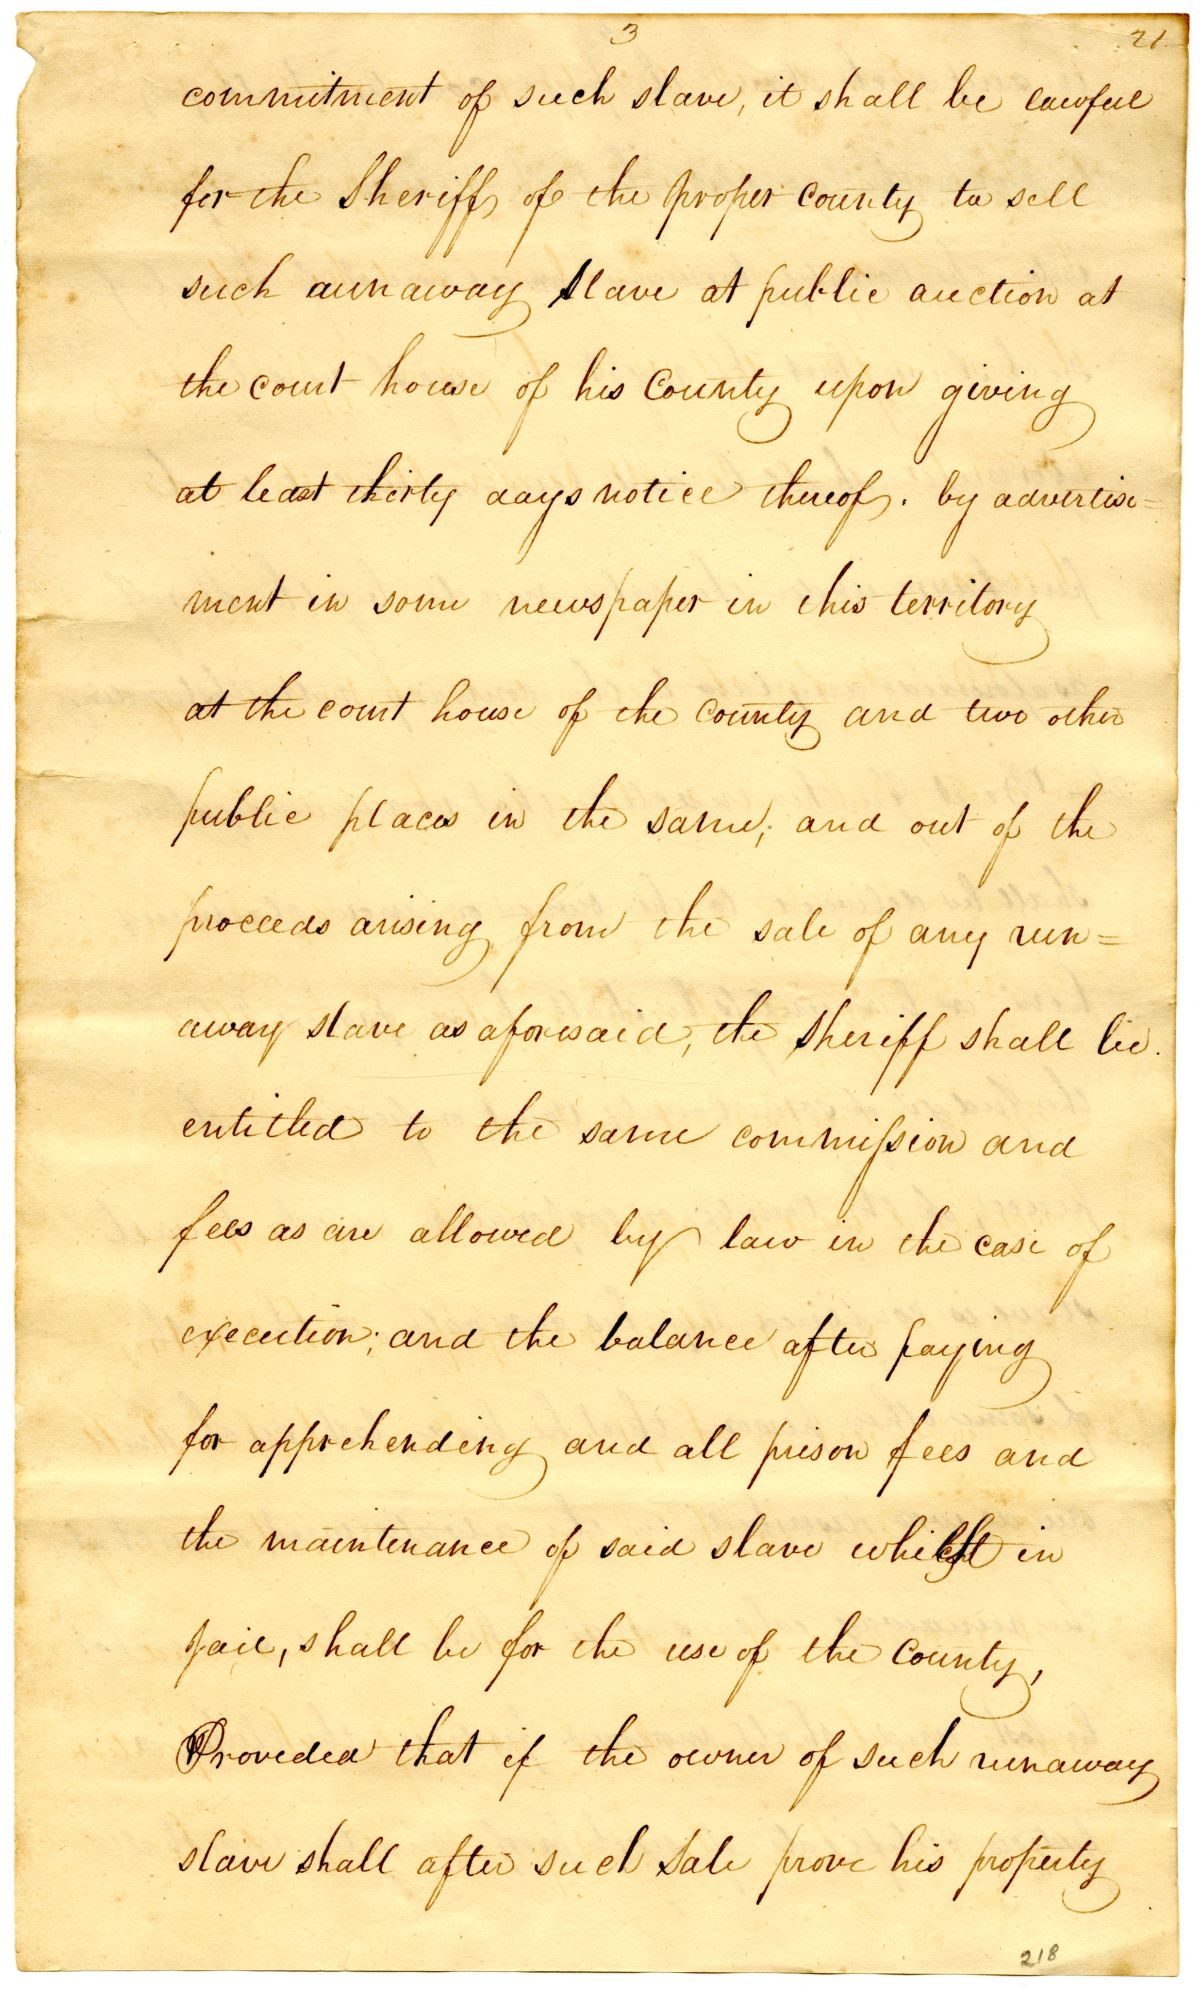 3
21
commitment of such slave, it shall be lawful
for the Sheriff of the proper County to sell
such runaway slave at public auction at
the court house of his County upon giving
at least thirty days notice thereof. by advertise=
ment in some newspaper in this territory
at the court house of the County and two other
public places in the same; and out of the
proceeds arising from the sale of any run=
away slave as aforesaid, the Sheriff shall be
entitled to the same commission and
fees as are allowed by law in the case of
execution; and the balance after paying
for apprehending and all prison fees and
the maintenance of said slave whilst in
jail, shall be for the use of the County,
Proveded that if the owner of such runaway
slave shall after such Sale prove his property
218